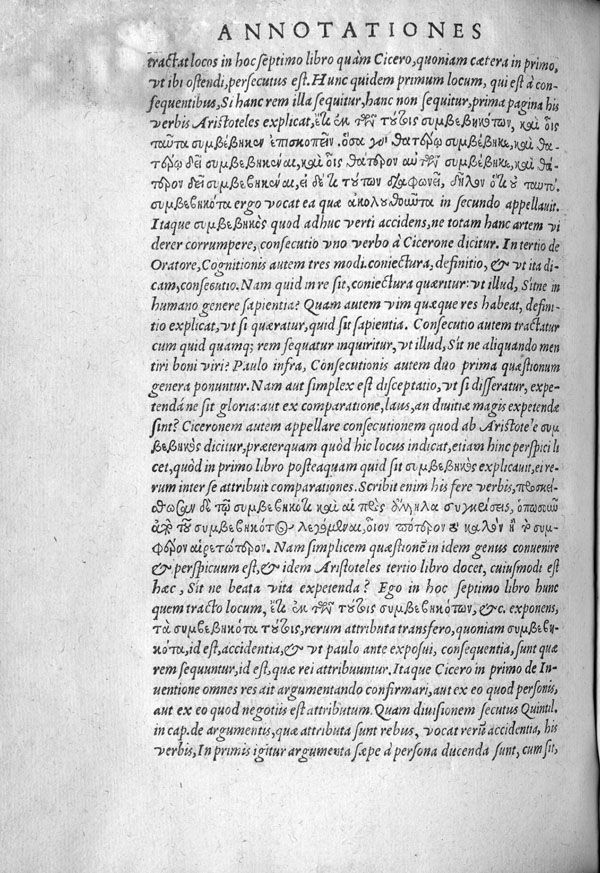 ANNOTATIONES
tractat locos in hoc septimo libro quàm Cicero, quoniam cætera in primo,
vt ibi ostendi, persecutus est. Hunc quidem primum locum, qui est à con
sequentibus, Si hanc rem illa sequitur, hanc non sequitur, prima pagina his
verbis Aristoteles explicat, ἔτι ἐκ τῶν τούτοις συμβεβηκότων, καὶ οἷς
ταῦτα συμβέβηκεν ἐπισκοπεῖν. ὅσα γὸ θατέρῳ συμβέβηκε, καὶ θα
τέρῳ δεῖ συμβεβηκέναι, καὶ οἷς θάτερον αὐτῶν συμβέβηκε, καὶ θά
τερον δεῖ συμβεβηκέναι, εἰ δέ τι τούτων διαφωνεῖ, δῆλον ὅτι οὐ ταυτό.
συμβεβηκότα ergo vocat ea quæ ἀκολουθοῦντα in secundo appellauit.
Itaque συμβεβηκὸς quod adhuc verti accidens, ne totam hanc artem vi
derer corrumpere, consecutio vno verbo à Cicerone dicitur. In tertio de
Oratore, Cognitionis autem tres modi. coniectura, definitio, & vt ita di-
cam, consecutio. Nam quid in re sit, coniectura quæritur: vt illud, Sitne in
humano genere sapientia? Quam autem vim quæque res habeat, defini-
tio explicat, vt si quæratur, quid sit sapientia. Consecutio autem tractatur
cum quid quamq; rem sequatur inquiritur, vt illud, Sit ne aliquando men
tiri boni viri? Paulo infra, Consecutionis autem duo prima quæstionum
genera ponuntur. Nam aut simplex est disceptatio, vt si disseratur, expe-
tendá ne sit gloria: aut ex comparatione, laus, an diuitiæ magis expetendæ
sint? Ciceronem autem appellare consecutionem quod ab Aristotele συμ
βεβηκὸς dicitur, præterquam quòd hic locus indicat, etiam hinc perspici li
cet, quòd in primo libro posteaquam quid sit συμβεβηκὸς explicauit, ei re-
rum inter se attribuit comparationes. Scribit enim his fere verbis, προσκεί-
σθωσαν δὲ τῷ συμβεβηκότι καὶ αἱ πρὸς ἄλληλα συγκρίσεις, ὁπωσοῦν
ἀπὸ τοῦ συμβεβηκότος λεγόμεναι, οἷον πότερον τὸ καλὸν ἢ τὸ συμ-
φέρον αἱρετώτερον. Nam simplicem quæstionẽ in idem genus conuenire
& perspicuum est, & idem Aristoteles tertio libro docet, cuiusmodi est
hæc, Sit ne beata vita expetenda? Ego in hoc septimo libro hunc
quem tracto locum, ἔτι ἐκ τῶν τούτοις συμβεβηκότων, &c. exponens,
τὰ συμβεβηκότα τούτοις, rerum attributa transfero, quoniam συμβεβη-
κότα, id est, accidentia, & vt paulo ante exposui, consequentia, sunt quæ
rem sequuntur, id est, quæ rei attribuuntur. Itaque Cicero in primo de In-
uentione omnes res ait argumentando confirmari, aut ex eo quod personis,
aut ex eo quod negotiis est attributum. Quam diuisionem secutus Quintil.
in cap. de argumentis, quæ attributa sunt rebus, vocat rerũ accidentia, his
verbis, In primis igitur argumenta sæpe à persona ducenda sunt, cum sit,